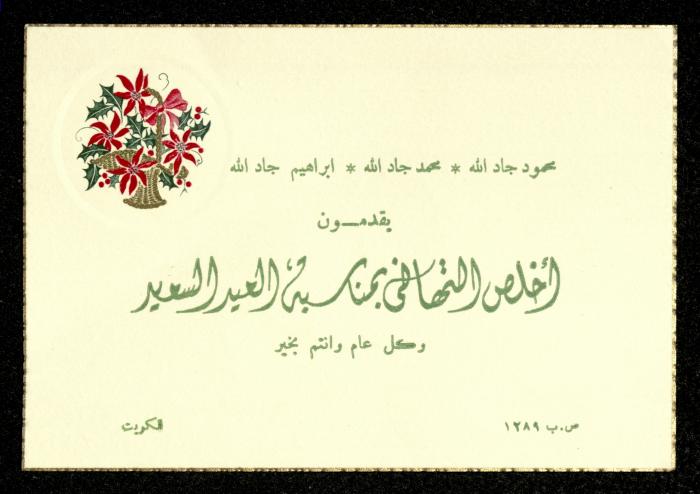 محمود جاد الله * محمد جاد الله * ابراهيم جاد الله
يقدمــون
أخلص التهانى بمناسبة العيد السعيد
وكل عام وانتم بخير
ص.ب ١٢٨٩
الكويت